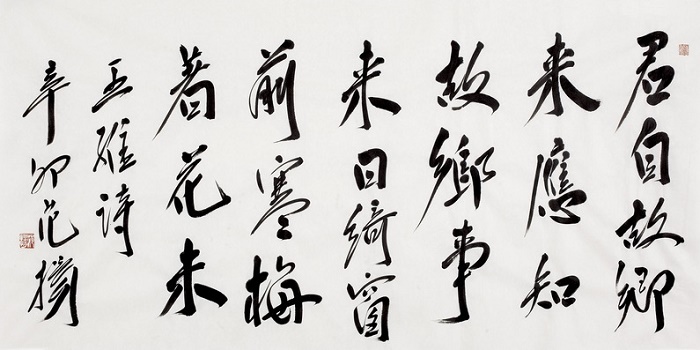 君自故鄉
来應知
故鄉事
来日綺窗
前寒梅
着花未
王維詩
辛卯范撝